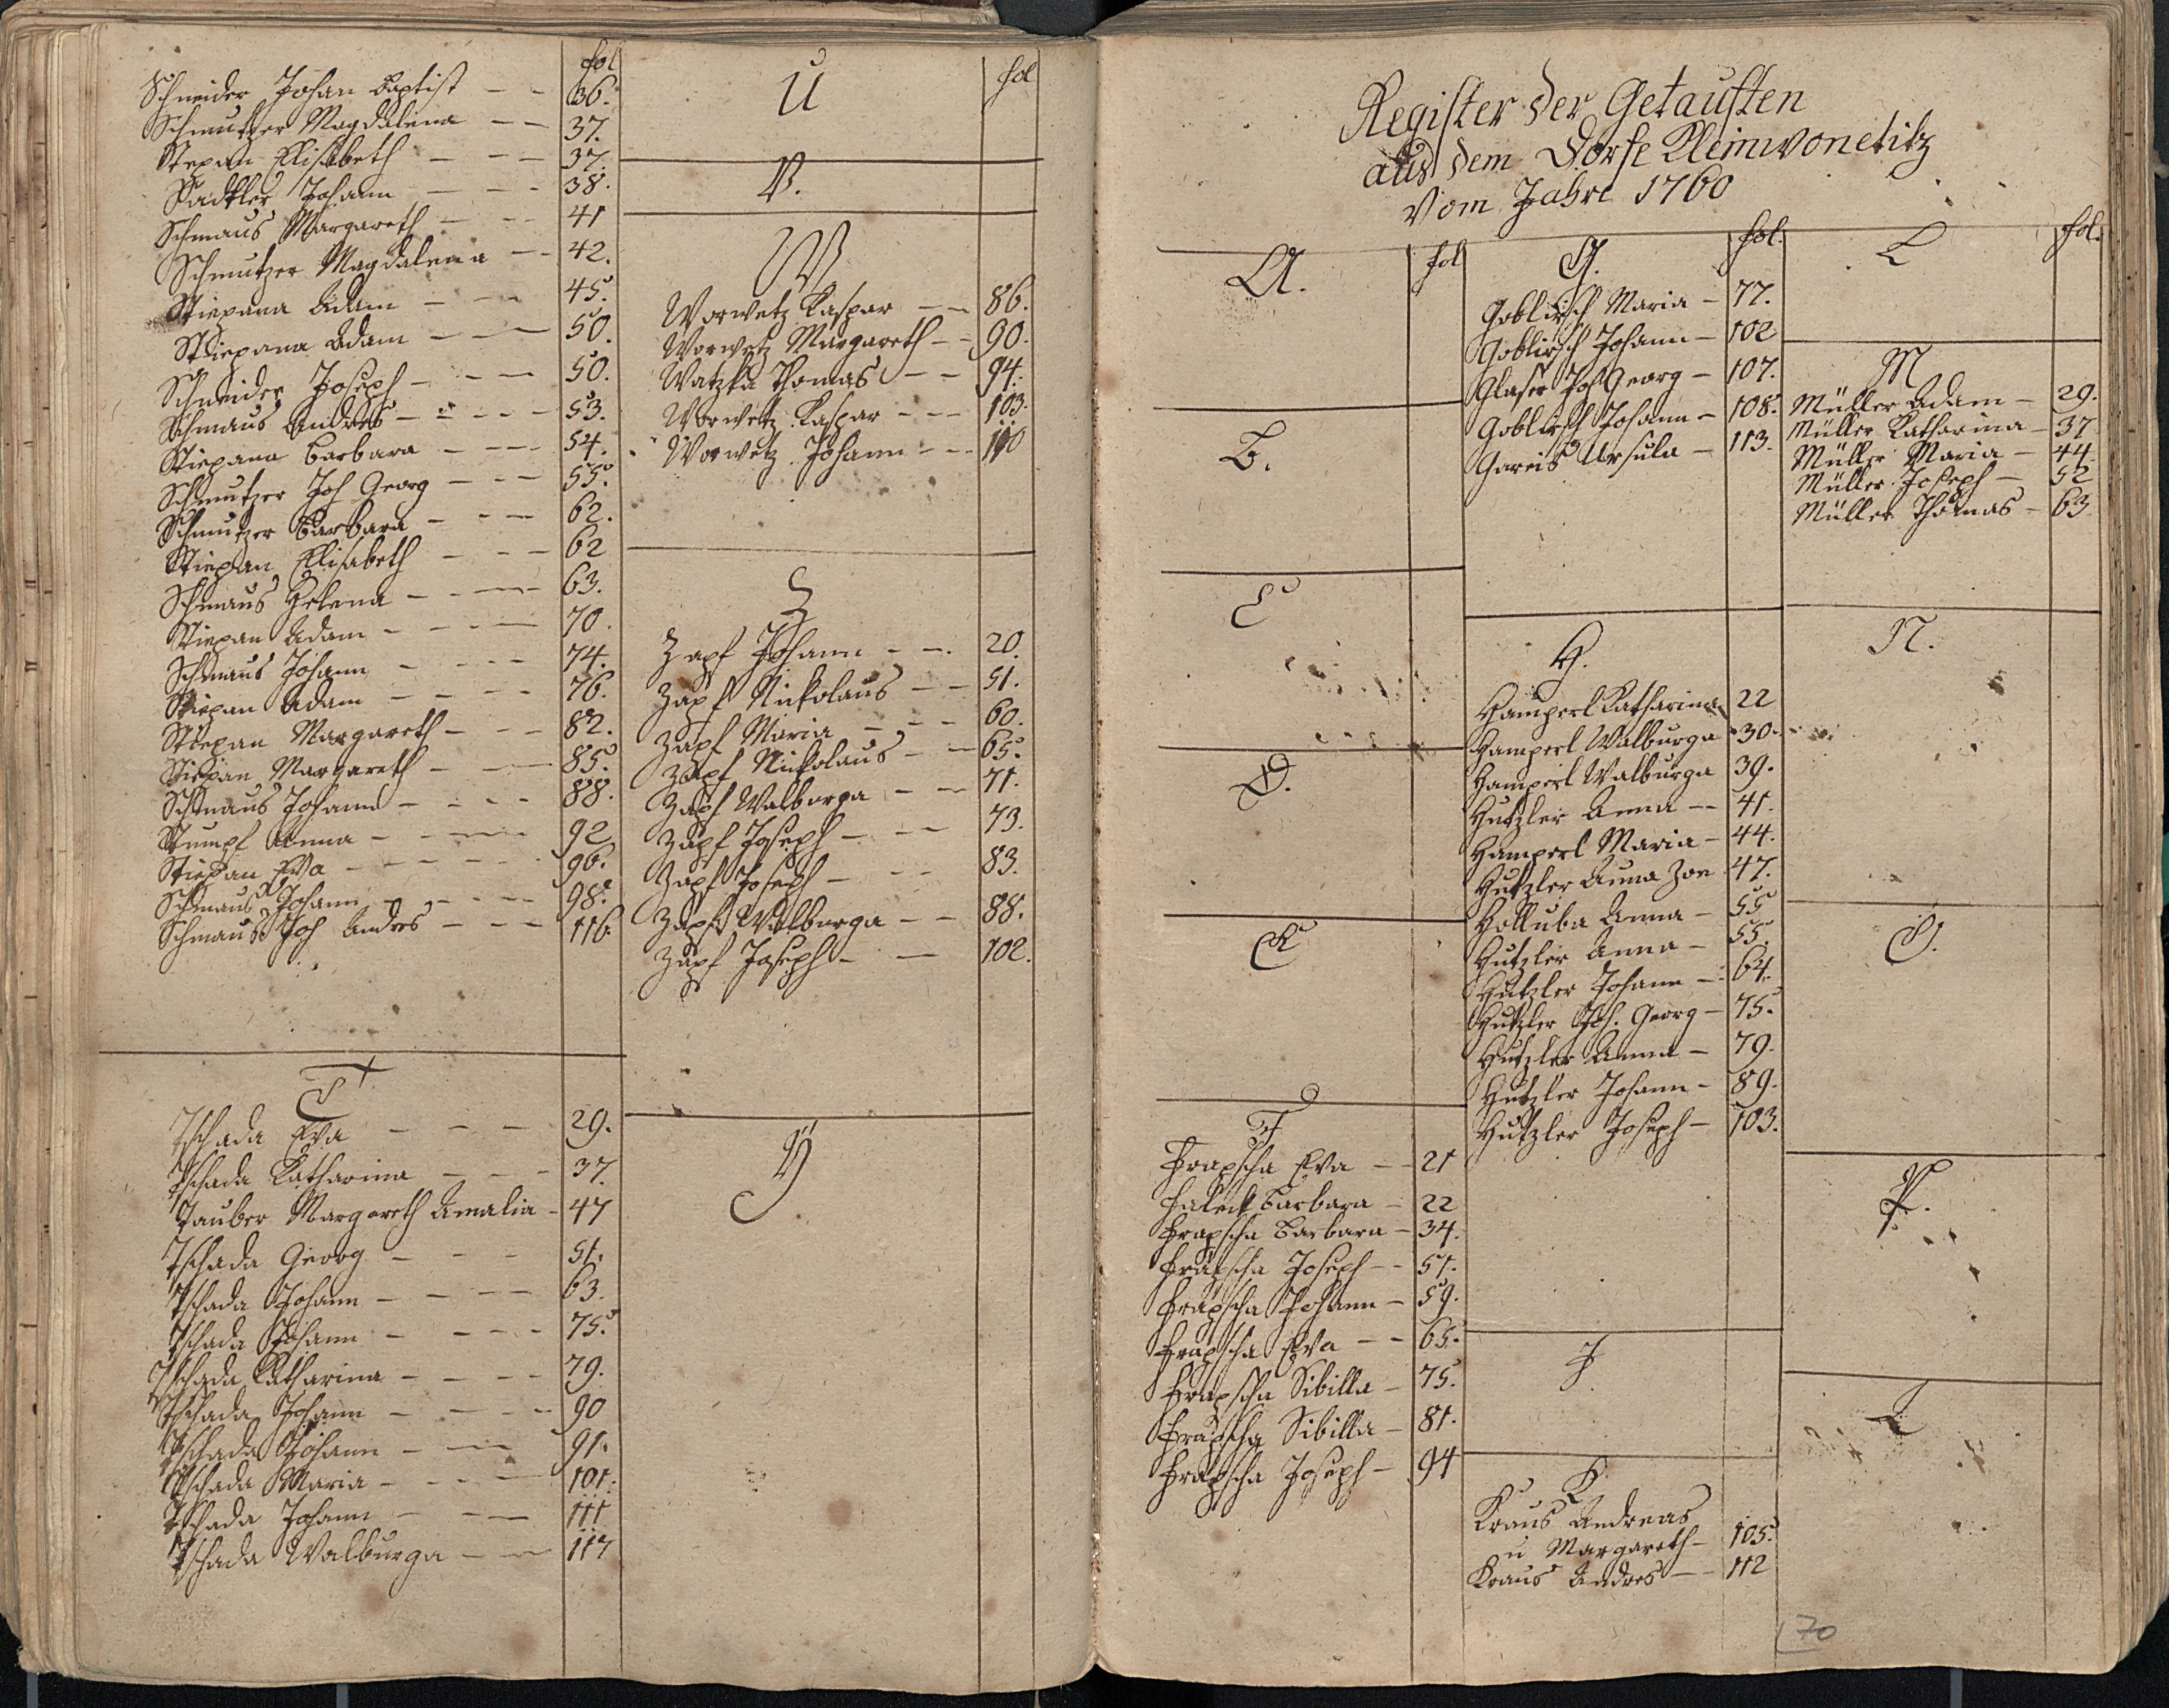 fol
Schneider Johan Baptist - - 36.
Schmutzer Magdalena - - 37.
Stepan Elisabeth - - - 37.
Sadtler Johann - - - 38.
Schmaus Margareth - - - 41
Schmutzer Magdalena - - 42.
Stiepana Adam - - - 45.
Stiepana Adam - - - 50.
Schneider Joseph - - - 50.
Schmaus Andres - - - - 53.
Stiepana Barbara - - - 54.
Schmutzer Joh Georg - - - 55.
Schmutzer Barbara - - - 62.
Stiepan Elisabeth - - - 62
Schmaus Helena - - - 63.
Stiepan Adam - - - - 70.
Schmaus Johann - - - - 74.
Stiepan Adam - - - - 76.
Stiepan Margareth - - - 82.
Stiepan Margareth - - - 85.
Schmaus Johann - - - - 88.
Stumpf Anna - - - - 92
Stiepan Eva - - - - - 96.
Schmaus Johann - - - - 98.
Schmaus Joh Andres - - - 116.
T
Tschada Eva - - - 29.
Tschada Katharina - - - 37.
Tauber Margareth Amalia - 47
Tschada Georg - - - 51.
Tschada Johann - - - - 63.
Tschada Johann - - - - 75.
Tschada Katharina - - - - 79.
Tschada Johann - - - - 90
Tschada Johann - - - 91.
Tschada Maria - - - - 101.
Tschada Johann - - - 111
Tschada Walburga - - 117
U fol
V.
W
Worwetz Kaspar - - 86.
Worwetz Margareth - - 90.
Watzka Thomas - - 94.
Worwetz Kaspar - - - 103.
Worwetz Johann - - 110
Z
Zapf Johann - - . 20.
Zapf Nickolaus - - 51.
Zapf Maria - - - 60.
Zapf Nickolaus - - 65.
Zapf Walburga - - 71.
Zapf Joseph - - - 73.
Zapf Joseph - - - 83.
Zapf Walburga - - 88.
Zapf Joseph - - 102.
Y
Register der Getauften
aus dem Dorfe Kleinwonetitz
Vom Jahre 1760
A. fol
B.
C
D.
E
F
Frapscha Eva - - 21
Barbara - 22
Frapscha Barbara - 34.
Frapscha Joseph - - 51.
Frapscha Johann - 59.
Frapscha Eva - - 65.
Frapscha Sibilla - 75.
Frapscha Sibilla - 81.
Frapscha Joseph - 94
G. fol.
Goblirsch Maria - 77.
Goblirsch Johann - 102
Glaser Joh Georg - 107.
Goblirsch Johann - 108.
Gareis Ursula - 113.
H.
Hamperl Katharina 22
Hamperl Walburga 30.
Hamperl Walburga 39.
Hutzler Anna - - 41.
Hamperl Maria - 44.
Hutzler Anna 47.
Holluba Anna - 55
Hutzler Anna - 55.
Hutzler Johann - 64.
Hutzler Joh. Georg - 75.
Hutzler Anna - 79.
Hutzler Johann - 89.
Hutzler Joseph - 103.
J
K
Kraus Andreas
u Margareth - 105.
Kraus Andres - - 112
L fol.
M
Müller Adam - 29.
Müller Katharina - 37
Müller Maria - 44.
Müller Joseph - 52
Müller Thomas - 63
N.
O.
P.
70